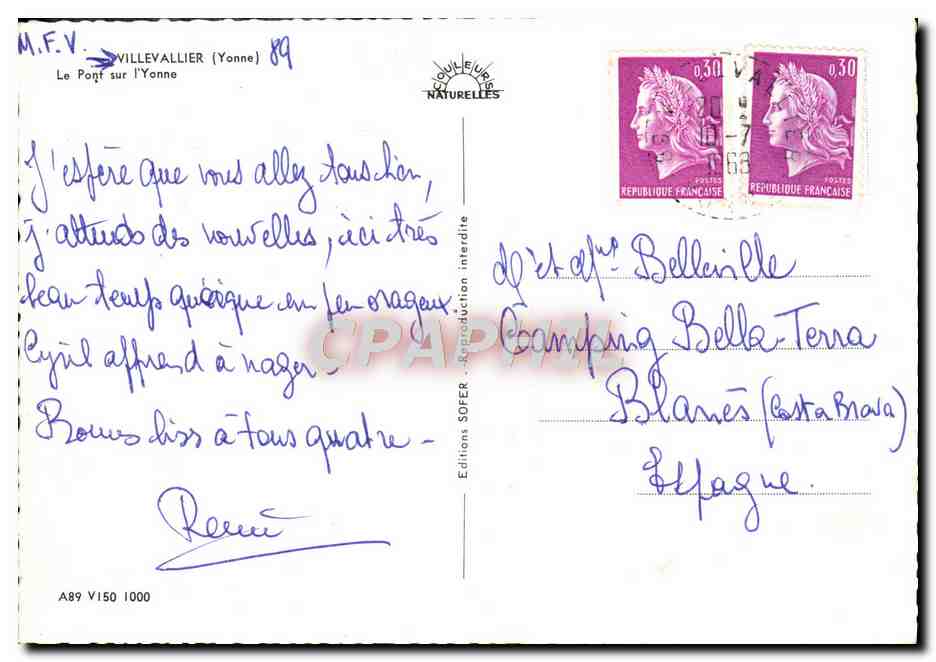 M.F.V.
VILLEVALLIER (Yonne) 89
Le Pont sur l'Yonne
COULEURS
NATURELLES
0,30
0,30
10-7
1968
POSTES
POSTES
REPUBLIQUE FRANÇAISE
REPUBLIQUE FRANÇAISE
J'espère que vous allez tous bien,
j'attends des nouvelles, ici très
beau temps quoique un peu orageux.
Cyril apprend à nager.
Bonnes biss à tous quatre -
Rémi
A89 V150 1000
Editions SOFER - Reproduction interdite
CPAPHIL
Mr et Mme Belleville
Camping Bella-Terra
Blanès (Costa Brava)
Espagne.